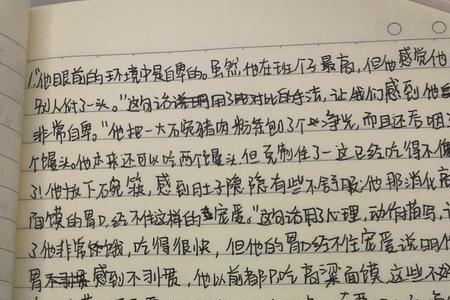 1."他眼前的环境中是自卑的。虽然他在班个子最高,但他感觉他
别人低了一头。"这句话运用了对比手法,让我们感到他自
非常自卑。"他把一大碗猪肉粉条包了个争光,而且还吞咽了
个馒头。他本来还可以吃两个馒头,但克制住了一这已经吃得不像
了!他放下碗筷,感到肚子隐隐有些不舒服他那消化高
面馍的胃口,经不住这样的宠爱。"这句话用了心理,动作描写,
了他非常饿,吃得很快,但他的胃口经不住宠爱说明他
胃感到不习惯,他以前都只吃高粱面馍,这些不好